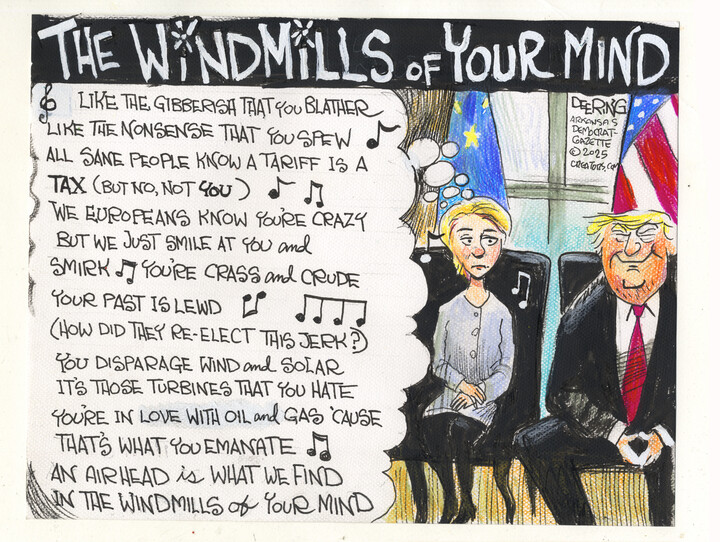 THE WINDMILLS OF YOUR MIND
LIKE THE GIBBERISH THAT YOU BLATHER
LIKE THE NONSENSE THAT YOU SPEW
ALL SANE PEOPLE KNOW A TARIFF IS A
TAX (BUT NO, NOT YOU)
WE EUROPEANS KNOW YOU'RE CRAZY
BUT WE JUST SMILE AT YOU and
SMIRK YOU'RE CRASS and CRUDE
YOUR PAST IS LEWD
(HOW DID THEY RE-ELECT THIS JERK?)
YOU DISPARAGE WIND and SOLAR
IT'S THOSE TURBINES THAT YOU HATE
YOU'RE IN LOVE WITH OIL and GAS 'CAUSE
THAT'S WHAT YOU EMANATE
AN AIRHEAD is WHAT WE FIND
IN THE WINDMILLS of YOUR MIND
DEERING
ARKANSAS
DEMOCRAT-
GAZETTE
© 2025
CREATORS.COM